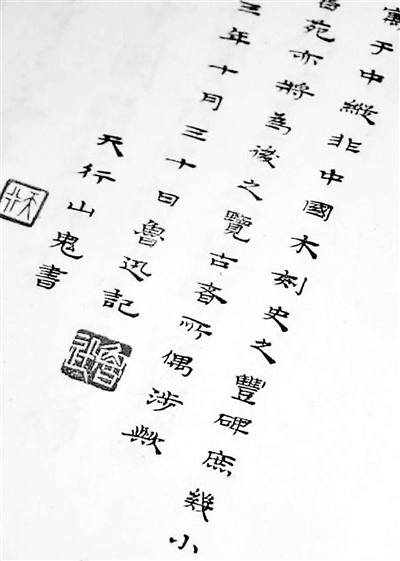 寓于中縱非中國木刻史之豐碑庶幾小
舊苑亦將為後之覽古者所偶涉歟
三年十月三十日魯迅記
天行山鬼書
魯迅
天行